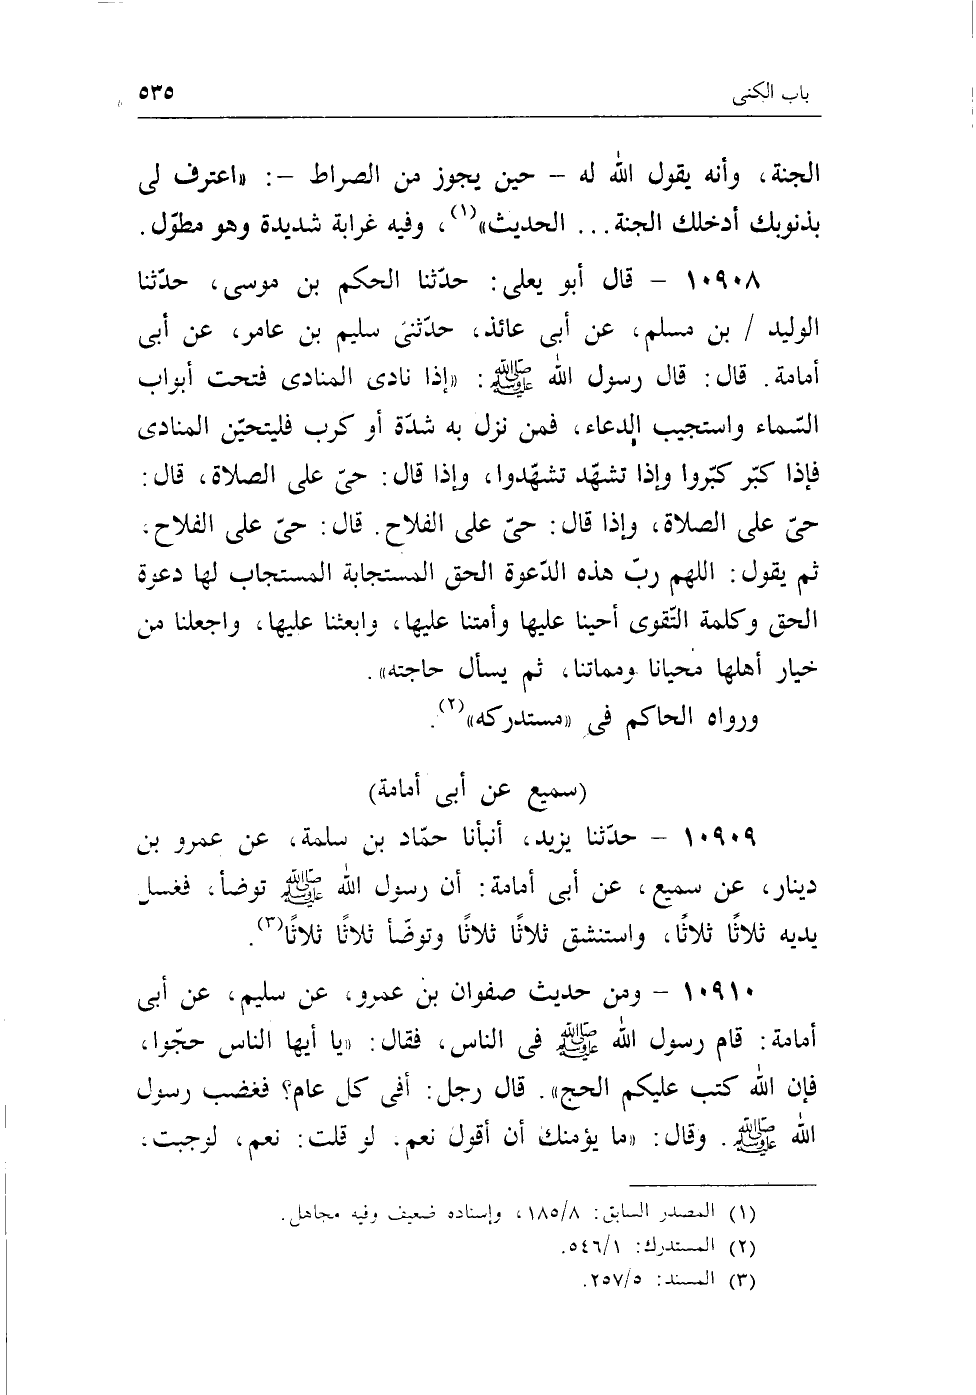 باب الكنى ٥٣٥
الجنة، وأنه يقول الله له – حين يجوز من الصراط –: «اعترف لى
بذنوبك أدخلك الجنة... الحديث»(١)، وفيه غرابة شديدة وهو مطوّل.
١٠٩٠٨ – قال أبو يعلى: حدّثنا الحكم بن موسى، حدّثنا
الوليد / بن مسلم، عن أبى عائذ، حدّثنى سليم بن عامر، عن أبى
أمامة. قال: قال رسول الله ﷺ: «إذا نادى المنادى فتحت أبواب
السّماء واستجيب الدعاء، فمن نزل به شدّة أو كرب فليتحيّن المنادى
فإذا كبّر كبّروا وإذا تشهّد تشهّدوا، وإذا قال: حىّ على الصلاة، قال:
حىّ على الصلاة، وإذا قال: حىّ على الفلاح. قال: حىّ على الفلاح.
ثم يقول: اللهم ربّ هذه الدّعوة الحق المستجابة المستجاب لها دعوة
الحق وكلمة التّقوى أحينا عليها وأمتنا عليها، وابعثنا عليها، واجعلنا من
خيار أهلها محيانا ومماتنا، ثم يسأل حاجته».
ورواه الحاكم فى «مستدركه»(٢).
(سميع عن أبى أمامة)
١٠٩٠٩ – حدّثنا يزيد، أنبأنا حمّاد بن سلمة، عن عمرو بن
دينار، عن سميع، عن أبى أمامة: أن رسول الله ﷺ توضأ، فغسل
يديه ثلاثًا ثلاثًا، واستنشق ثلاثًا ثلاثًا وتوضّأ ثلاثًا ثلاثًا(٣).
١٠٩١٠ – ومن حديث صفوان بن عمرو، عن سليم، عن أبى
أمامة: قام رسول الله ﷺ فى الناس، فقال: «يا أيها الناس حجّوا،
فإن الله كتب عليكم الحج». قال رجل: أفى كل عام؟ فغضب رسول
الله ﷺ. وقال: «ما يؤمنك أن أقول نعم. لو قلت: نعم، لوجبت،
(١) المصدر السابق: ١٨٥/٨، وإسناده ضعيف وفيه مجاهل.
(٢) المستدرك: ٥٤٦/١.
(٣) المسند: ٢٥٧/٥.